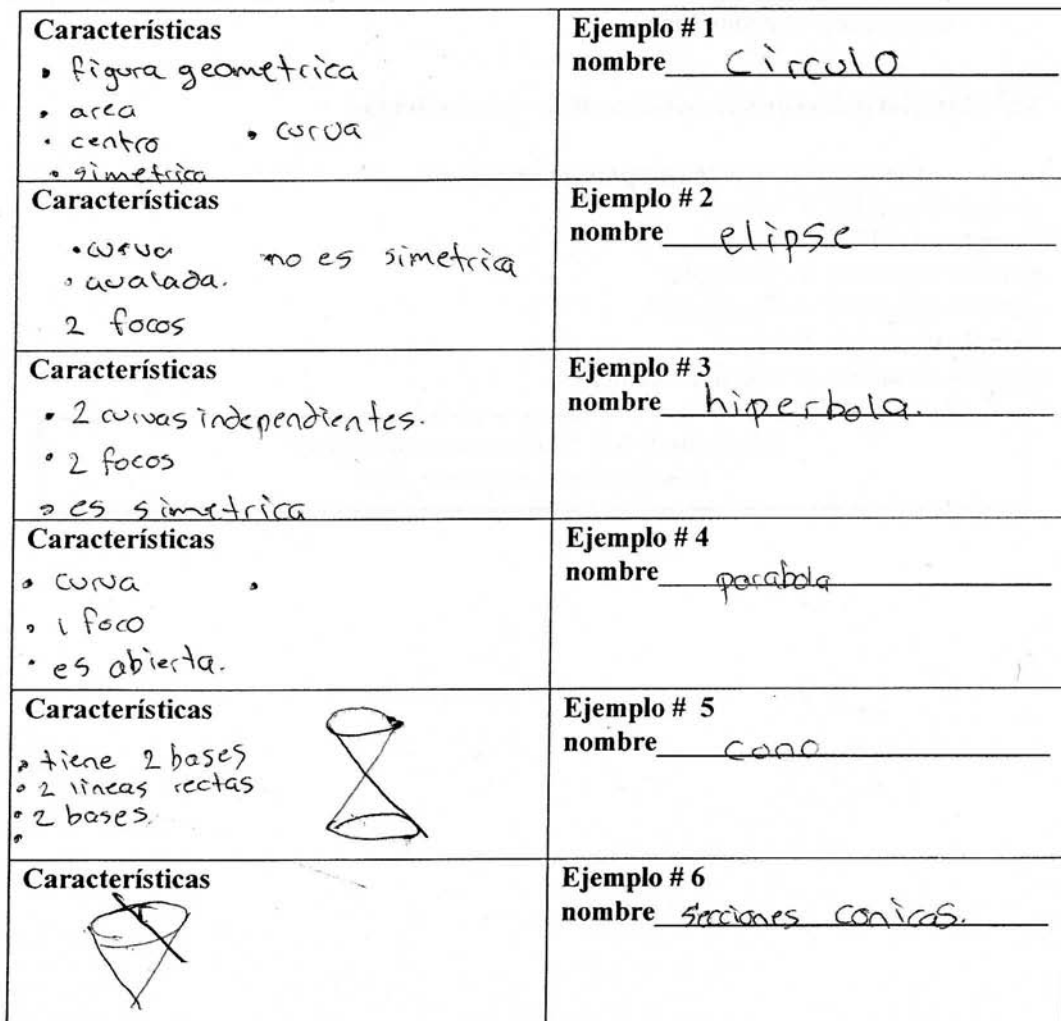 Características
• figura geometrica
• area
• centro • curva
• simetrica
Ejemplo # 1
nombre circulo
Características
• curva no es simetrica
• avalada.
2 focos
Ejemplo # 2
nombre elipse
Características
• 2 curvas independientes.
• 2 focos
• es simetrica
Ejemplo # 3
nombre hiperbola.
Características
• curva •
• 1 foco
• es abierta.
Ejemplo # 4
nombre parabola
Características
• tiene 2 bases
• 2 lineas rectas
• 2 bases.
•
Ejemplo # 5
nombre cono
Características
Ejemplo # 6
nombre secciones conicas.